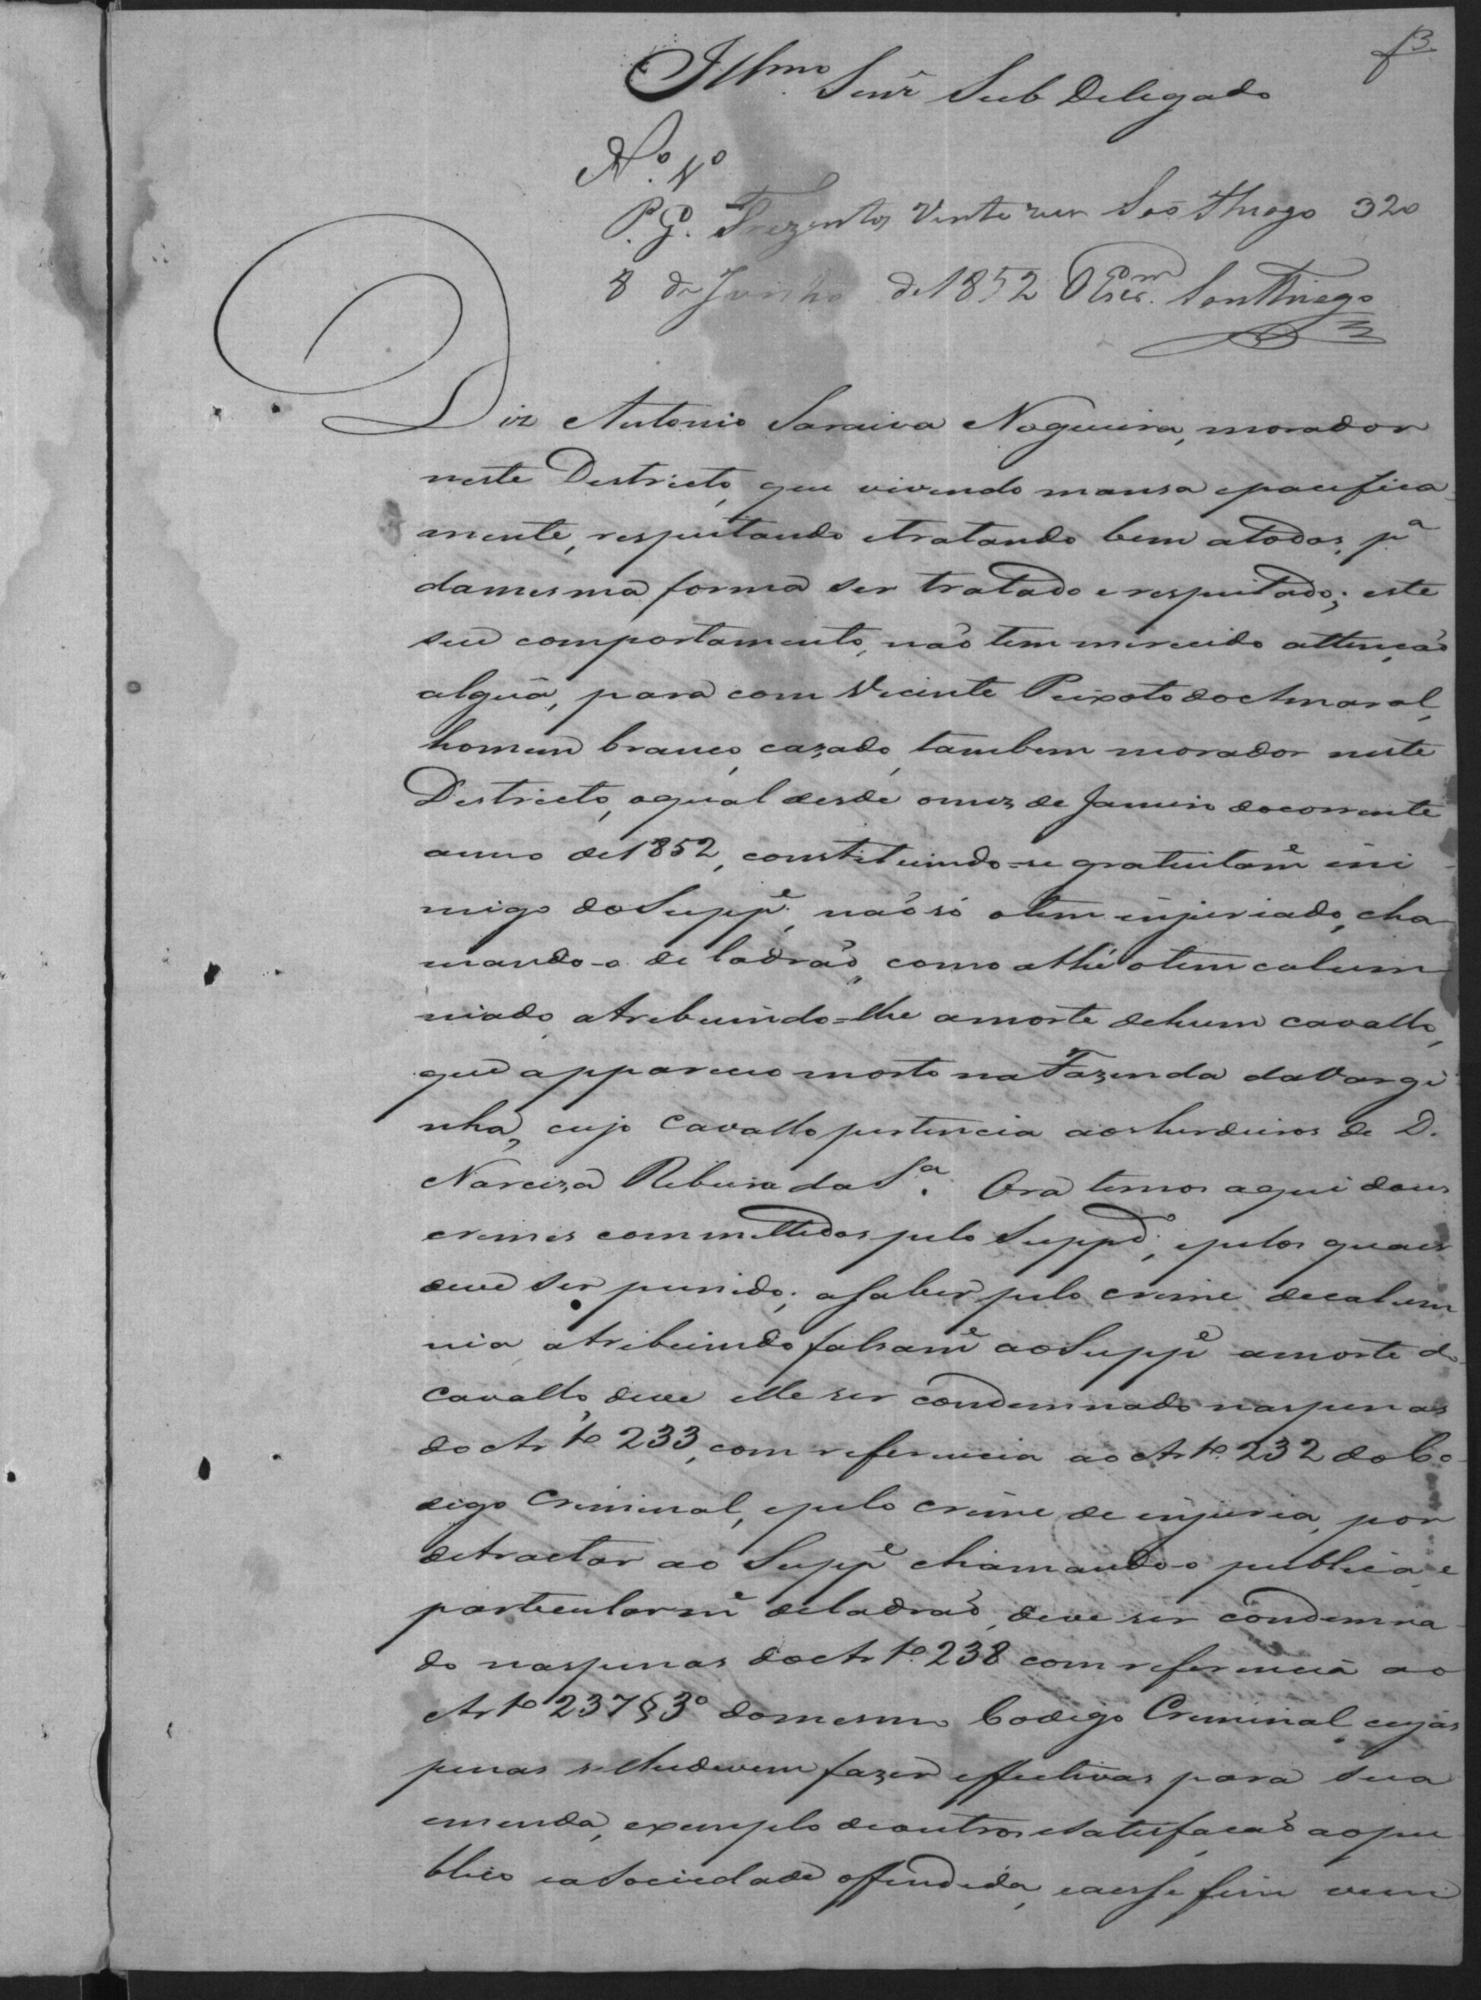 f 3
Illmo. Senr. Sub Delegado
No. 10
P. G. Trezentos Vinte reis São Thiago 320
8 de Junho de 1852 San Thiago
Diz Antonio Saraiva Nogueira, morador
neste Destricto, que vivendo mansa epacifica
mente, respeitando etratando bem atodos, pa
damesma forma ser tratado erespeitado; este
seu comportamento, não tem merecido attenção
alguã, para com Vicente Peixoto do Amaral,
homem branco, cazado, tambem morador neste
Destricto, oqual desde omez de Janeiro docorrente
anno de 1852, constituindo-se gratuitame. ini
migo do Suppe., não só otem injuriado, cha
mando-o de ladrão, como athé otem calum
niado, atribuindo-lhe amorte dehum cavallo,
que appareceo morto na Fazenda daVargi
nha, cujo Cavallo pertencia aos herdeiros de D.
Narciza Ribeira da Sa. Ora temos aqui dous
crimes committidos pelo Suppdo., epelos quaes
deve ser punido; asaber, pelo crime decalum
nia, atribuindo falsame. ao Suppe. amorte do
cavallo, deve elle ser condemnado naspenas
do Arto. 233, com referencia ao Arto. 232 do Co
digo Criminal, epelo crime de injuria, por
detractar ao Suppe. chamando-o publica, e
particularme. deladrão, deve ser condemna
do naspenas do Arto. 238 com referencia ao
Arto. 237 § 3o. domesmo Codigo Criminal, cujas
penas selhedevem fazer effectivas para sua
emenda, exemplo deoutros esatisfação aopu
blico easociedade offendida, eaesse fim vem